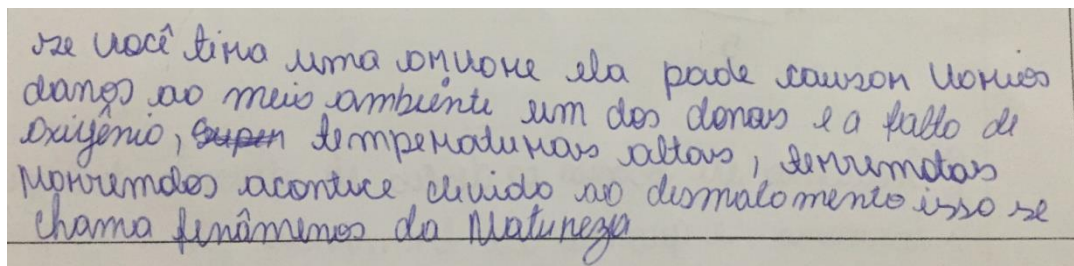 se você tira uma arvore ela pode causar varios
danos ao meio ambiente um dos danos e a falta de
oxigênio, temperaturas altas, terremotas
acontece devido ao desmatamento isso se
chama fenâmenos da Natureza